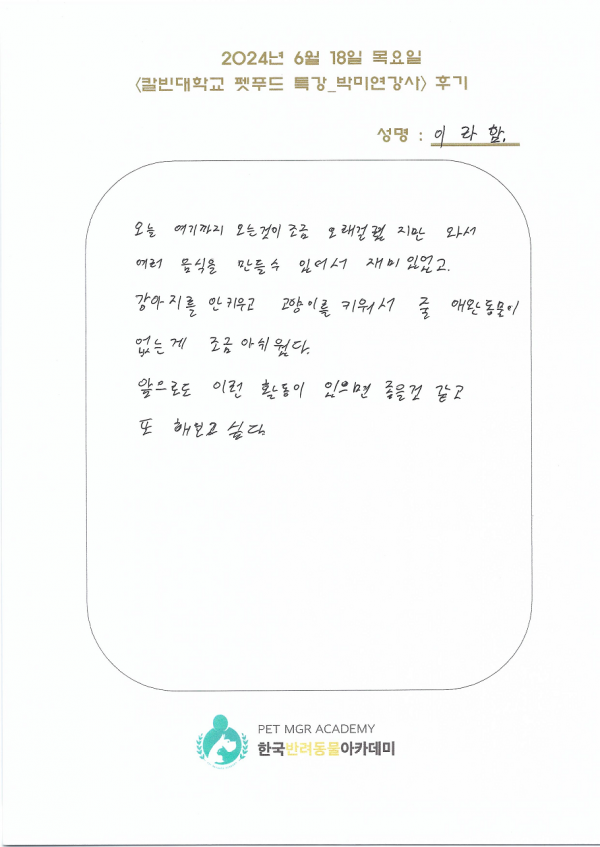 2024년 6월 18일 목요일
<칼빈대학교 펫푸드 특강_박미연강사> 후기
성명 : 이 라 함.
오늘 여기까지 오는것이 조금 오래걸렸 지만 와서
여러 음식을 만들수 있어서 재미있었고.
강아지를 안키우고 고양이를 키워서 줄 애완동물이
없는게 조금 아쉬웠다.
앞으로도 이런 활동이 있으면 좋을것 같고
또 해보고 싶다.
PET MGR ACADEMY
한국반려동물아카데미